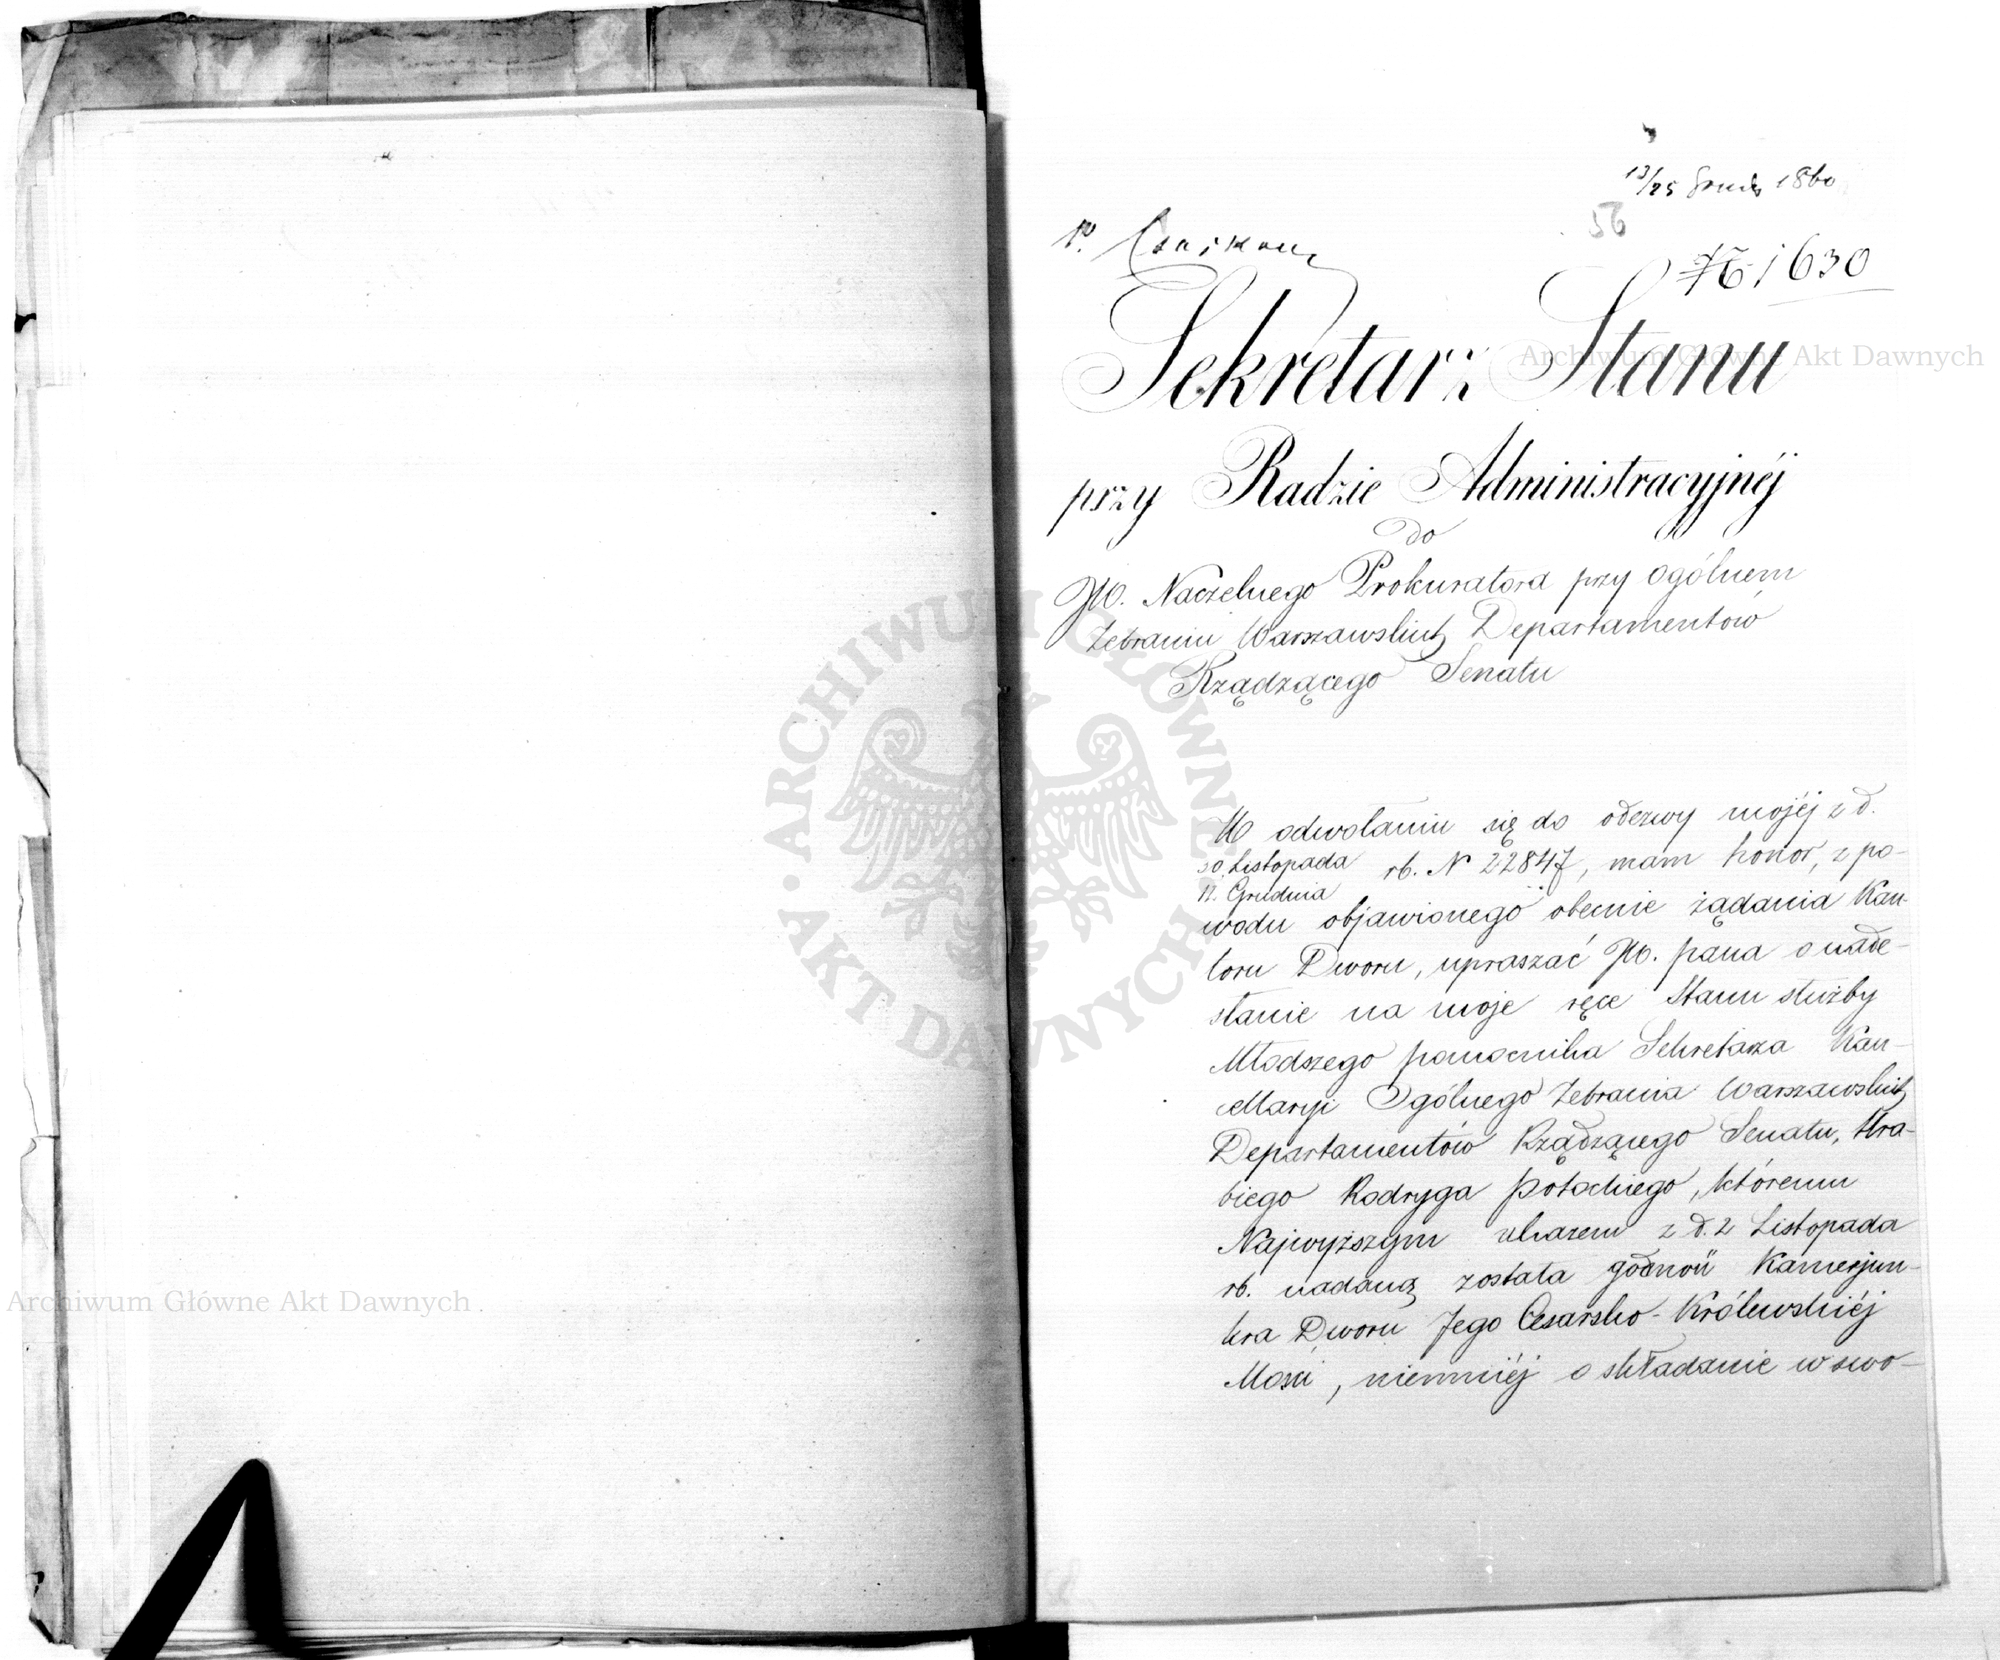 13/25 Grud 1860
56
№ 1630
Sekretarz Stanu
przy Radzie Administracyjnéj
do
JW. Naczelnego Prokuratora przy Ogólnem
Zebraniu Warszawskich Departamentów
Rządzącego Senatu
W odwołaniu się do odezwy mojéj z d.
30 Listopada
12. Grudnia
rb. N 22847, mam honor, z po-
wodu objawionego obecnie żądania Kan-
toru Dworu, upraszać JW. pana o nade-
słanie na moje ręce Stanu służby
Młodszego pomocnika Sekretarza Kan-
cellaryi Ogólnego Zebrania Warszawskich
Departamentów Rządzącego Senatu, Hra-
biego Rodryga Potockiego, któremu
Najwyższym ukazem z d. 2 Listopada
rb. nadaną została godność Kamerjun-
kra Dworu Jego Cesarsko-Królewskiéj
Mości, niemniéj o składanie w swo-
Archiwum Główne Akt Dawnych
Archiwum Główne Akt Dawnych
ARCHIWUM GŁÓWNE AKT DAWNYCH